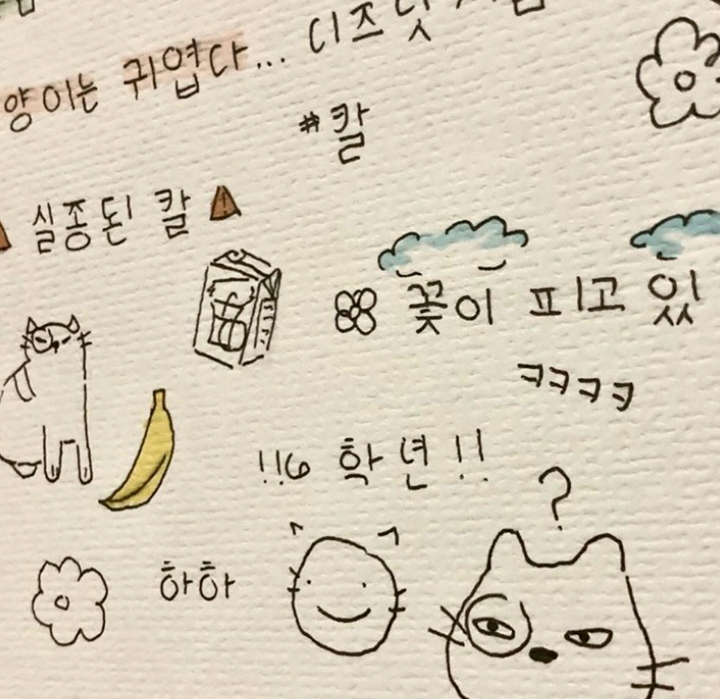 양이는 귀엽다... 디즈
#칼
실종된 칼
꽃이 피고 있
ㅋㅋㅋㅋ
!!6 학년!!
?
하하